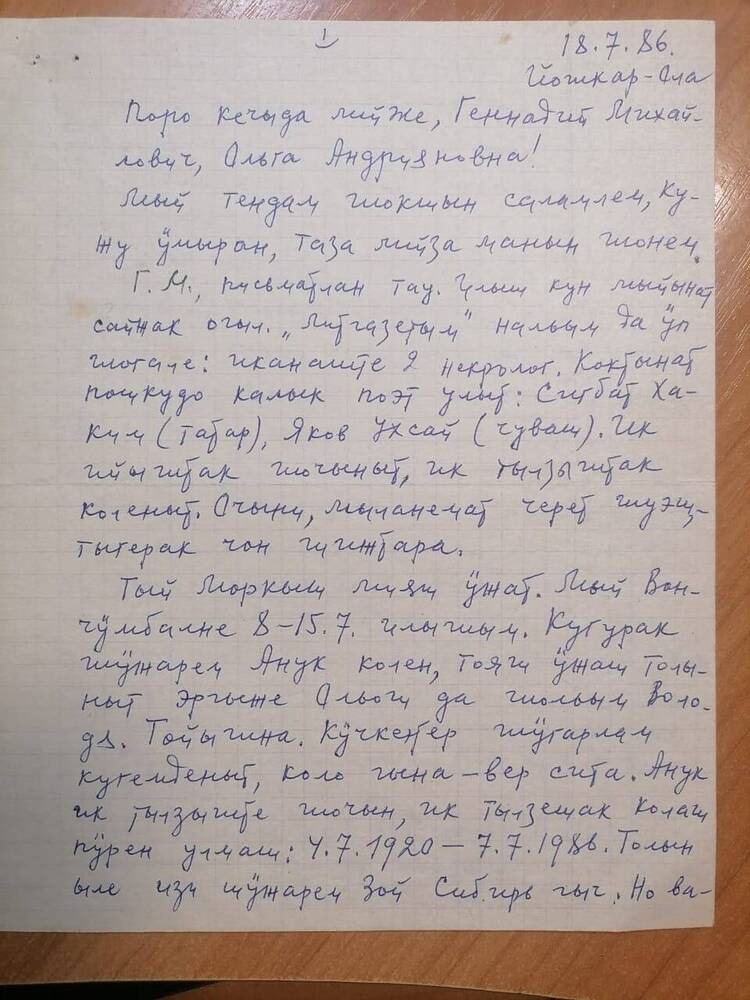 1
18.7.86.
Йошкар-Ола
Поро кечыда лийже, Геннадий Михай-
лович, Ольга Андрияновна!
Мый тендам шокшын саламлем, ку-
жу ӱмыран, таза лийза манын шонем.
Г. М., письматлан тау. Илыш кун мыйынат
сайжак огыл. „Литгазетым" нальым да ӱп
шогале: иканаште 2 некролог. Коктынат
пошкудо калык поэт улыт: Сибгат Ха-
ким (татар), Яков Ухсай (чуваш). Ик
ийыштак шочыныт, ик тылзыштак
коленыт. Очыни, мыланемат черет шуэш,
тыгерак чон шижтара.
Тый Моркыш мияш ӱжат. Мый Вон-
чӱмбалне 8-15.7. илышым. Кугурак
шӱжарем Анук колен, тояш ӱжаш толы-
ныт эргыже Альоги да шольым Воло-
дя. Тойышна. Кӱчкеҥер шӱгарлам
кугемденыт, коло шына - вер сита. Анук
ик тылзыште шочын, ик тылзешак колаш
пӱрен улмаш: 4.7.1920 - 7.7.1986. Толын
ыле изи шӱжарем Зой Сибирь гыч. Но ва-